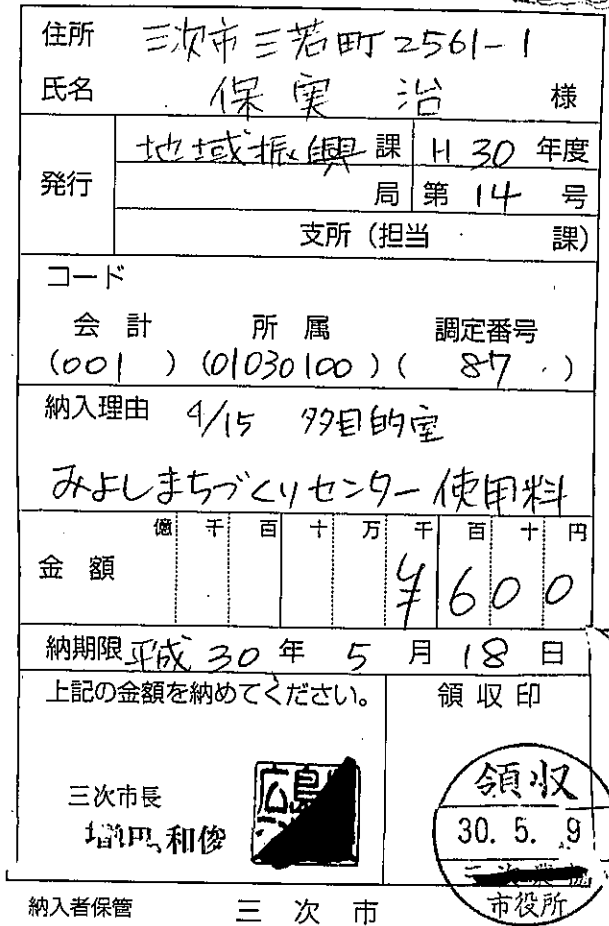 住所 三次市三若町2561-1
氏名 保実 治 様
発行 地域振興課 H30年度
局 第 14 号
支所(担当 課)
コード
会計 所属 調定番号
(001)(01030100)(87)
納入理由 4/15 多目的室
みよしまちづくりセンター使用料
億 千 百 十 万 千 百 十 円
金額 ¥600
納期限 平成30年5月18日
上記の金額を納めてください。 領収印
三次市長
増田 和俊
広島
領収
30. 5. 9
市役所
納入者保管 三次市